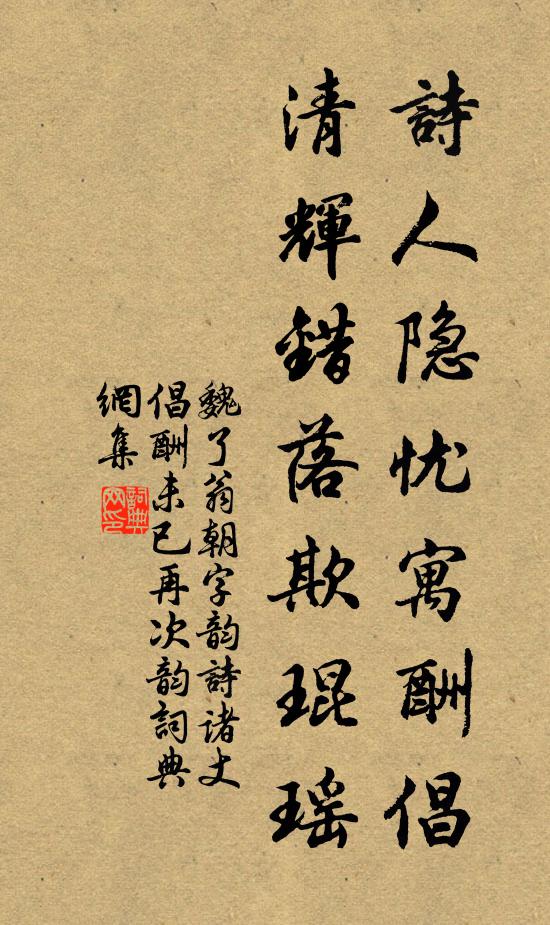 詩人隐忧寓酬倡
清輝錯落欺琨瑶
魏了翁朝字韵詩诸丈
倡酬未已再次韵詞典
網集
詞典网印